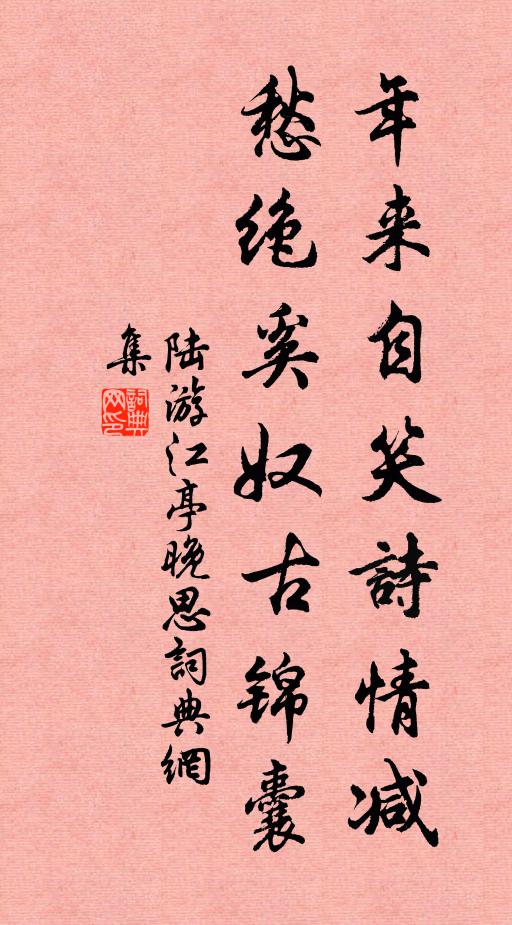 年来自笑詩情减
愁绝奚奴古锦囊
陆游江亭晚思詞典網
集
詞典
网印